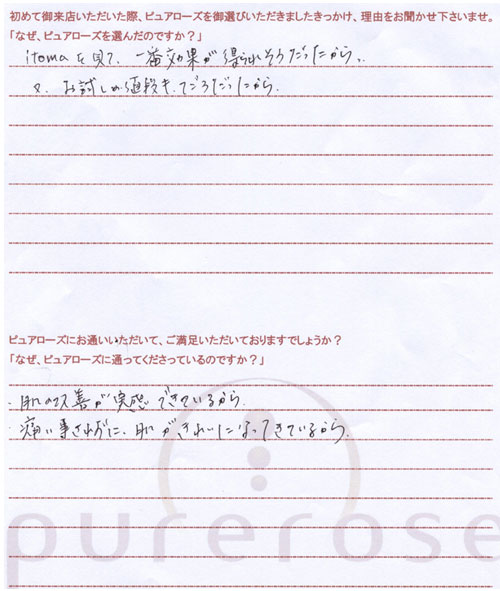 初めて御来店いただいた際、ピュアローズを御選びいただきましたきっかけ、理由をお聞かせ下さいませ。
「なぜ、ピュアローズを選んだのですか?」
itomaを見て、一番効果が得られそうだったから。
又、お試しの値段も、てごろだったから。
ピュアローズにお通いいただいて、ご満足いただいておりますでしょうか?
「なぜ、ピュアローズに通ってくださっているのですか?」
・肌の改善が実感できているから。
・痛い事されずに、肌がきれいになってきているから。
purerose